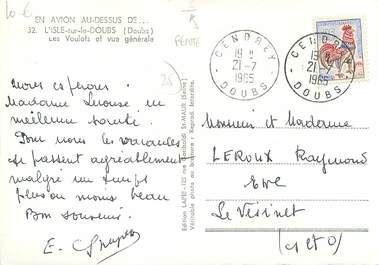 10 €
EN AVION AU-DESSUS DE...
32. L'ISLE-sur-le-DOUBS (Doubs)
Les Voulots et vue générale
CENDREY
19 H
21-7
1965
DOUBS
CENDREY
19 H
21-7
1965
DOUBS
nous espérons
Madame en
meilleure santé.
Pour nous les vacances
se passent agréablement
malgré un temps
plus ou moins beau
Bon souvenir.
E.
Edition LAPIE - 125 rue Garibaldi St-MAUR (Seine)
Véritable photo au bromure - Reprod. Interdite.
Monsieur et Madame
LEROUX Raymond
Le Vésinet
(S et O)